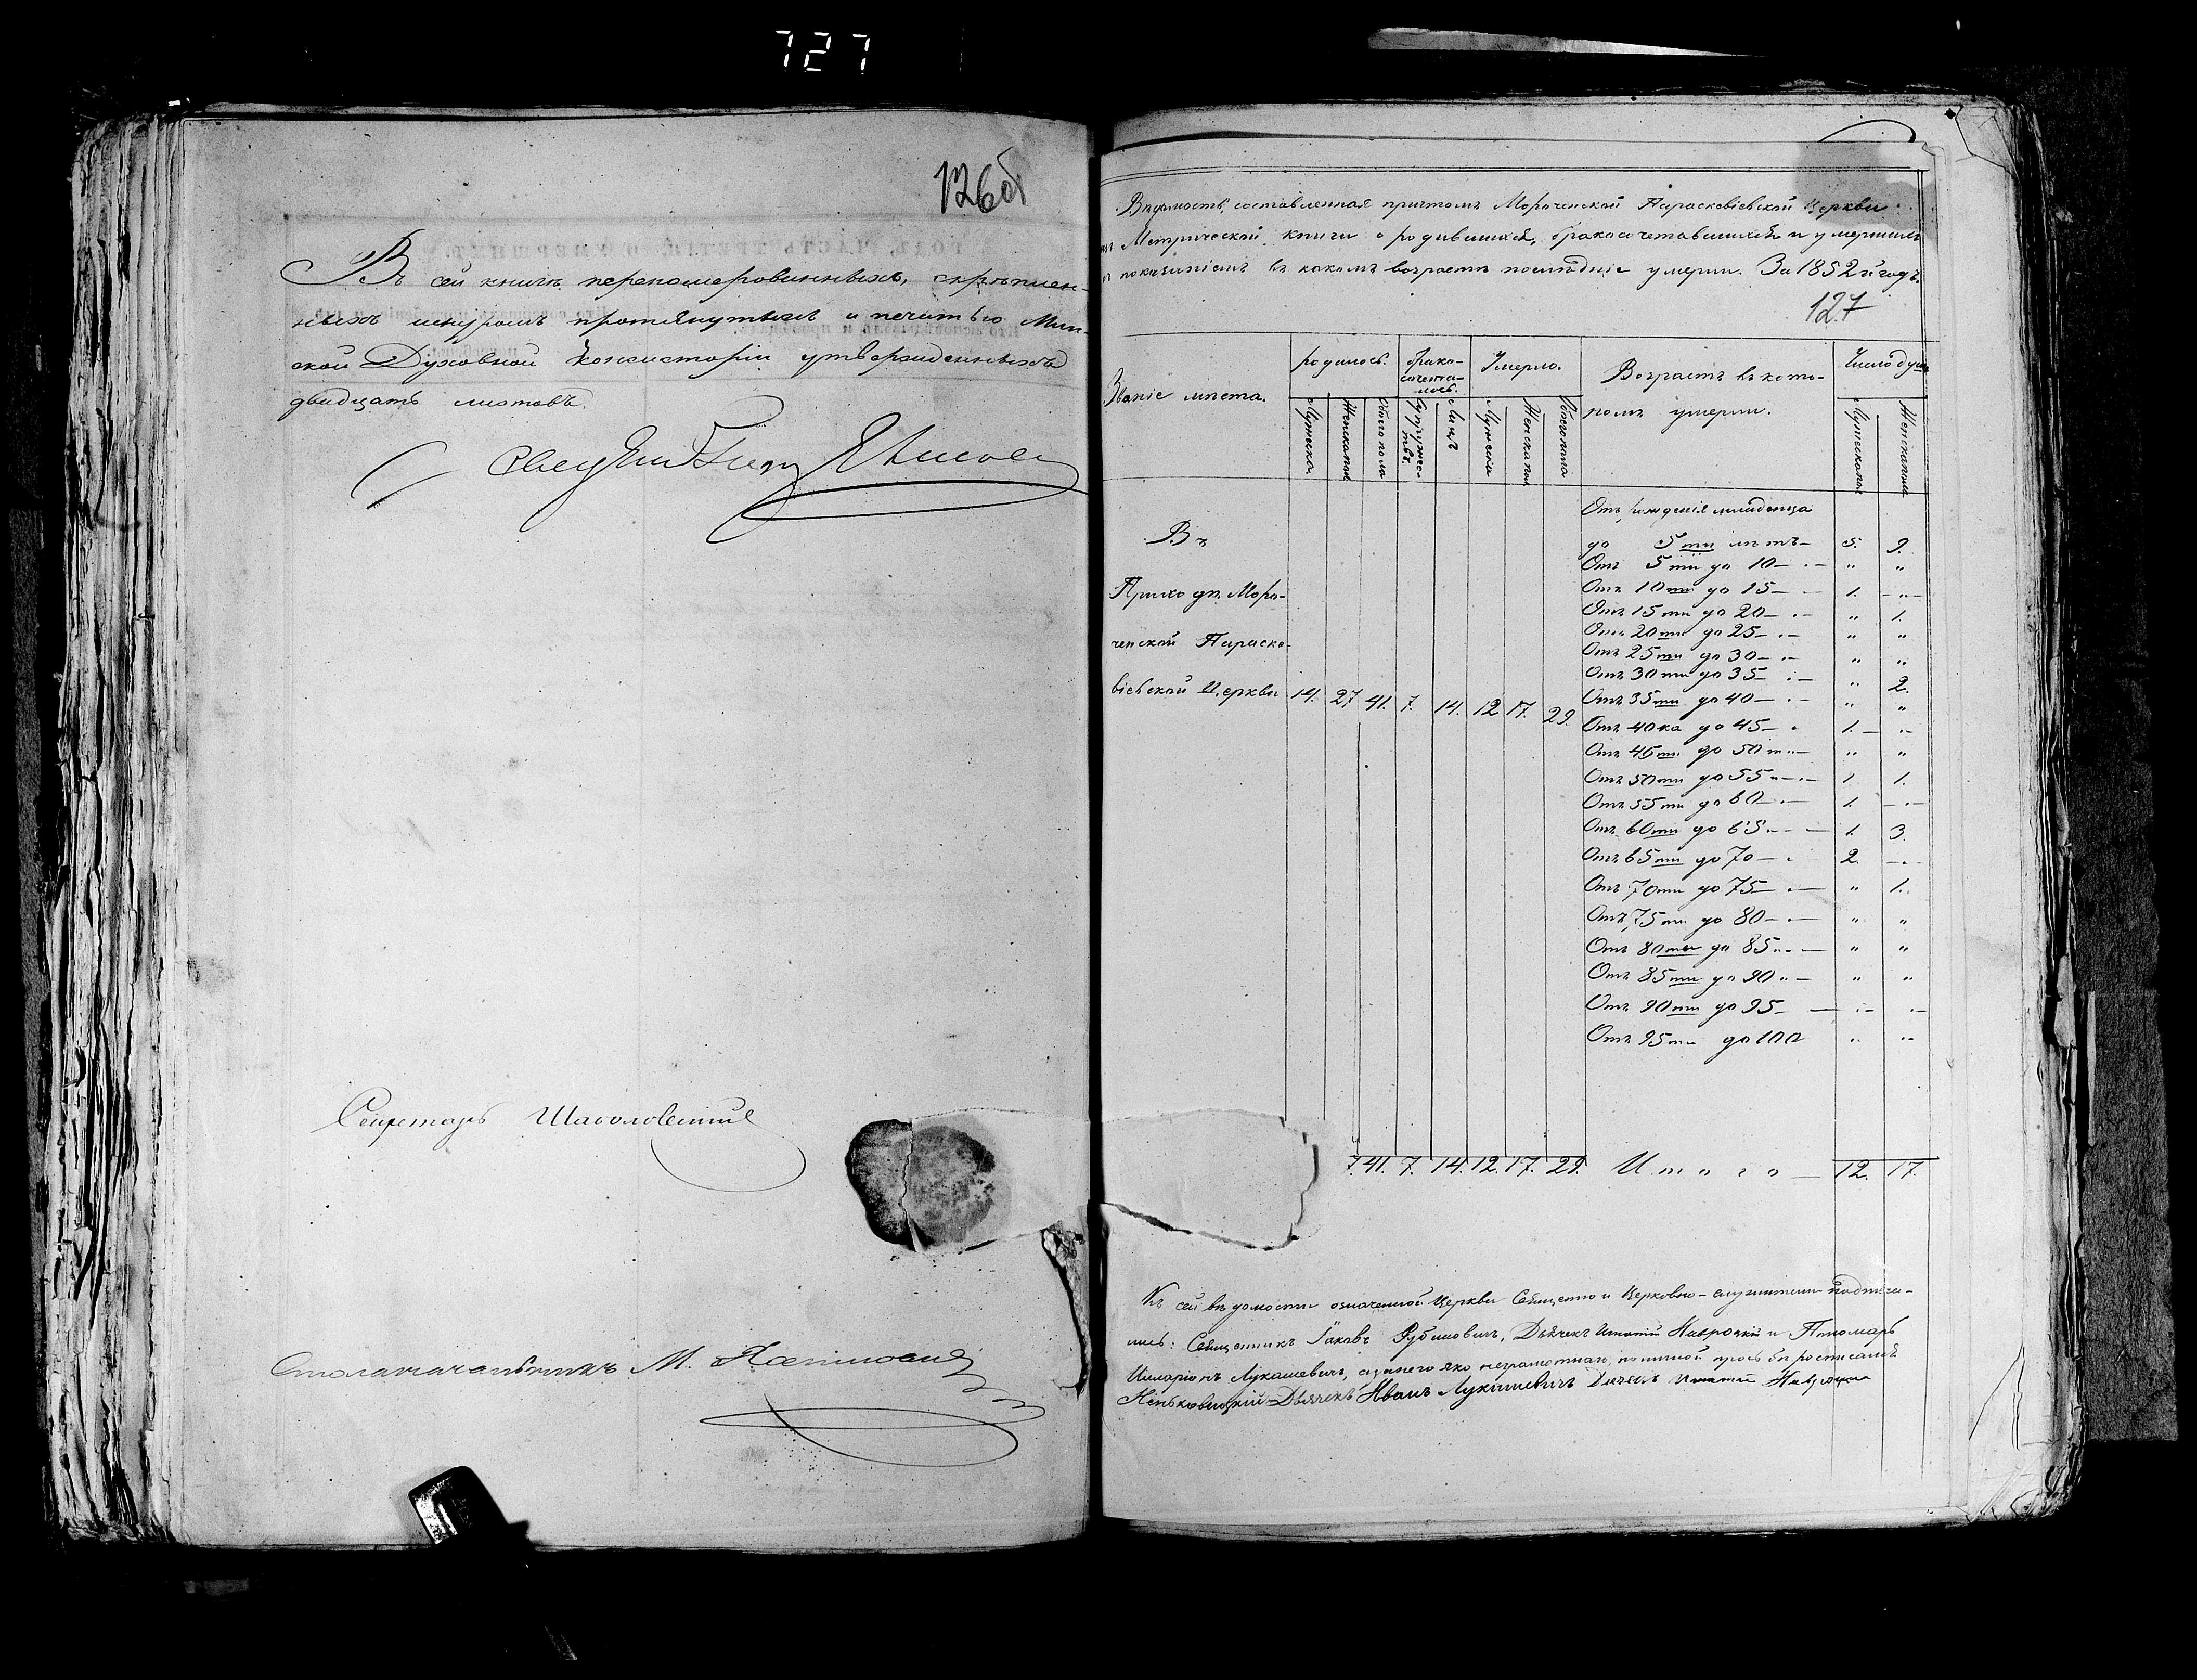 727
126об
Въ сей книгѣ переномерованныхъ, скрѣплен-
ныхъ шнуромъ протянутыхъ и печатью Мин-
ской Духовной Консисторіи утвержденныхъ
двадцать листовъ.
Секретарь
Столоначальникъ М.
Вѣдомость, составленная причтомъ Мороченской Параскевіевской Церкви
Метрической книги о родившихся, бракосочетавшихся и умершихъ
показаніемъ въ какомъ возрастѣ послѣдніе умерли. За 1852й годъ.
127
Званіе мѣста.
родилось.
брако-
сочета-
лось.
Умерло.
Возрастъ въ кото-
ромъ умерли.
Число душъ
Мужеска.
Женска пола
Обоего пола
Супруже-
ствъ.
Лицъ
Мужеска
Женска пола
Обоего пола
Мужеска пола
Женска пола
Отъ рожденія младенца
Въ
до 5ти лѣтъ— 5. 9.
Отъ 5ти до 10— " "
Приходѣ Моро-
Отъ 10ти до 15— 1. —
Отъ 15ти до 20— " 1.
Отъ 20ти до 25— " "
ченской Параске-
Отъ 25ти до 30— " "
Отъ 30ти до 35 — " 2.
віевской Церкви 14. 27 41. 7. 14. 12 17. 29.
Отъ 35ти до 40— " "
Отъ 40ка до 45— 1. —
Отъ 45ти до 50ти— " "
Отъ 50ти до 55— 1. 1.
Отъ 55ти до 60— 1. —
Отъ 60ти до 65— 1. 3.
Отъ 65ти до 70— 2. —
Отъ 70ти до 75— " 1.
Отъ 75ти до 80— " "
Отъ 80ти до 85— " "
Отъ 85ти до 90— " "
Отъ 90ти до 95— " "
Отъ 95ти до 100 " "
7. 41. 7. 14. 12. 17. 29. Итого — 12. 17.
Къ сей вѣдомости означенной Церкви Священно и Церковно-служители подписа-
лись: Священникъ Іаковъ Рубинович, Дьячекъ Игнатій Навроцкій и Пономарь
Иларіонъ Лукашевичъ, а за него яко неграмотнаго, по личной прозьбѣ росписался
Дьячекъ Иванъ Лукашевичъ Дячекъ Игнатій Навроцкій